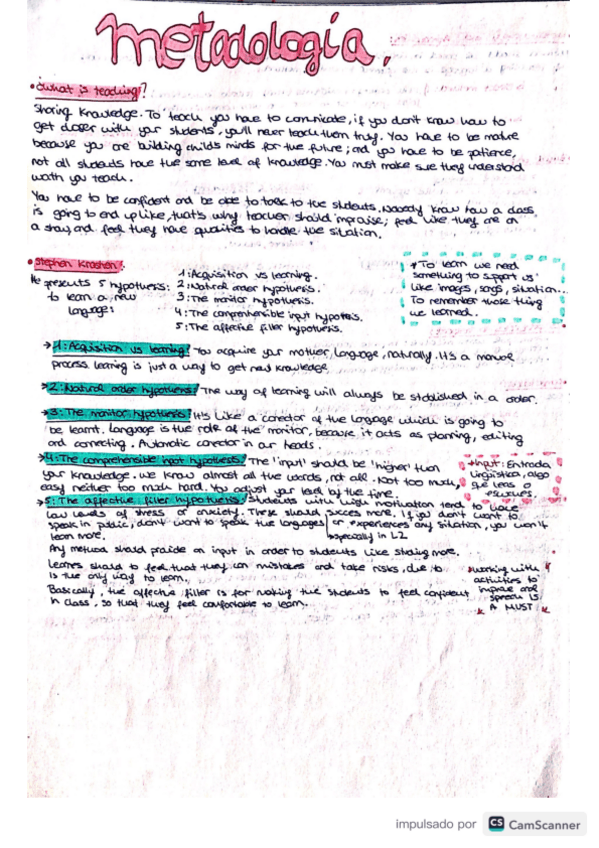 Metodología.
•What is teaching?
Sharing Knowledge. To teach you have to comunicate, if you don't know how to
get closer with your students, you'll never teach them truly. You have to be
because you are building child's minds for the future; and you have to be patience,
not all students have the same level of knowledge. You must make sure they understand
you teach.
You have to be confident and be able to talk to the students. Nobody know how a class
is going to end up like, that's why teacher should improvise; feel like they are on
a show, and feel they have qualities to handle the situation.
•Stephen Krashen:
He presents 5 hypothesis:
to learn a new
language:
1: Acquisition vs learning.
2: Natural order hypothesis.
3: The monitor hypothesis.
4: The comprehensible input hypothesis.
5: The affective filter hypothesis.
* To learn we need
something to support us
like images, songs, situation...
To remember those thing
we learned.
→1: Acquisition vs learning: You acquire your mother language, naturally. It's a
process. Learning is just a way to get new knowledge.
→2: Natural order hypothesis: The way of learning will always be stablished in a order.
→3: The monitor hypothesis: It's like a corrector of the language which is going to
be learnt. Language is the role of the monitor, because it acts as planning, editing
and correcting. Automatic corrector in our heads.
→4: The comprehensible input hypothesis: The 'input' should be 'higher' than
your knowledge. We know almost all the words, not all. Not too much
easy neither too much hard. You adjust your level by the time.
*Input: Entrada
lingüística, algo
que leas o
escuches.
→5: The affective filter hypothesis: Students with high motivation tend to have
low levels of stress or anxiety. These should succes more. If you don't want to
speak in public, don't want to speak the languages or experiences any situation, you won't
learn more.
→specially in L2
Any method should provide an input in order to students like studing more.
Learnes should to feel that they can mistakes and take risks, due to
is the only way to learn.
Basically, the affective filter is for making the students to feel confident
in class, so that they feel comfortable to learn.
*Working with
activities to
improve oral
speech is
A MUST
impulsado por CS CamScanner